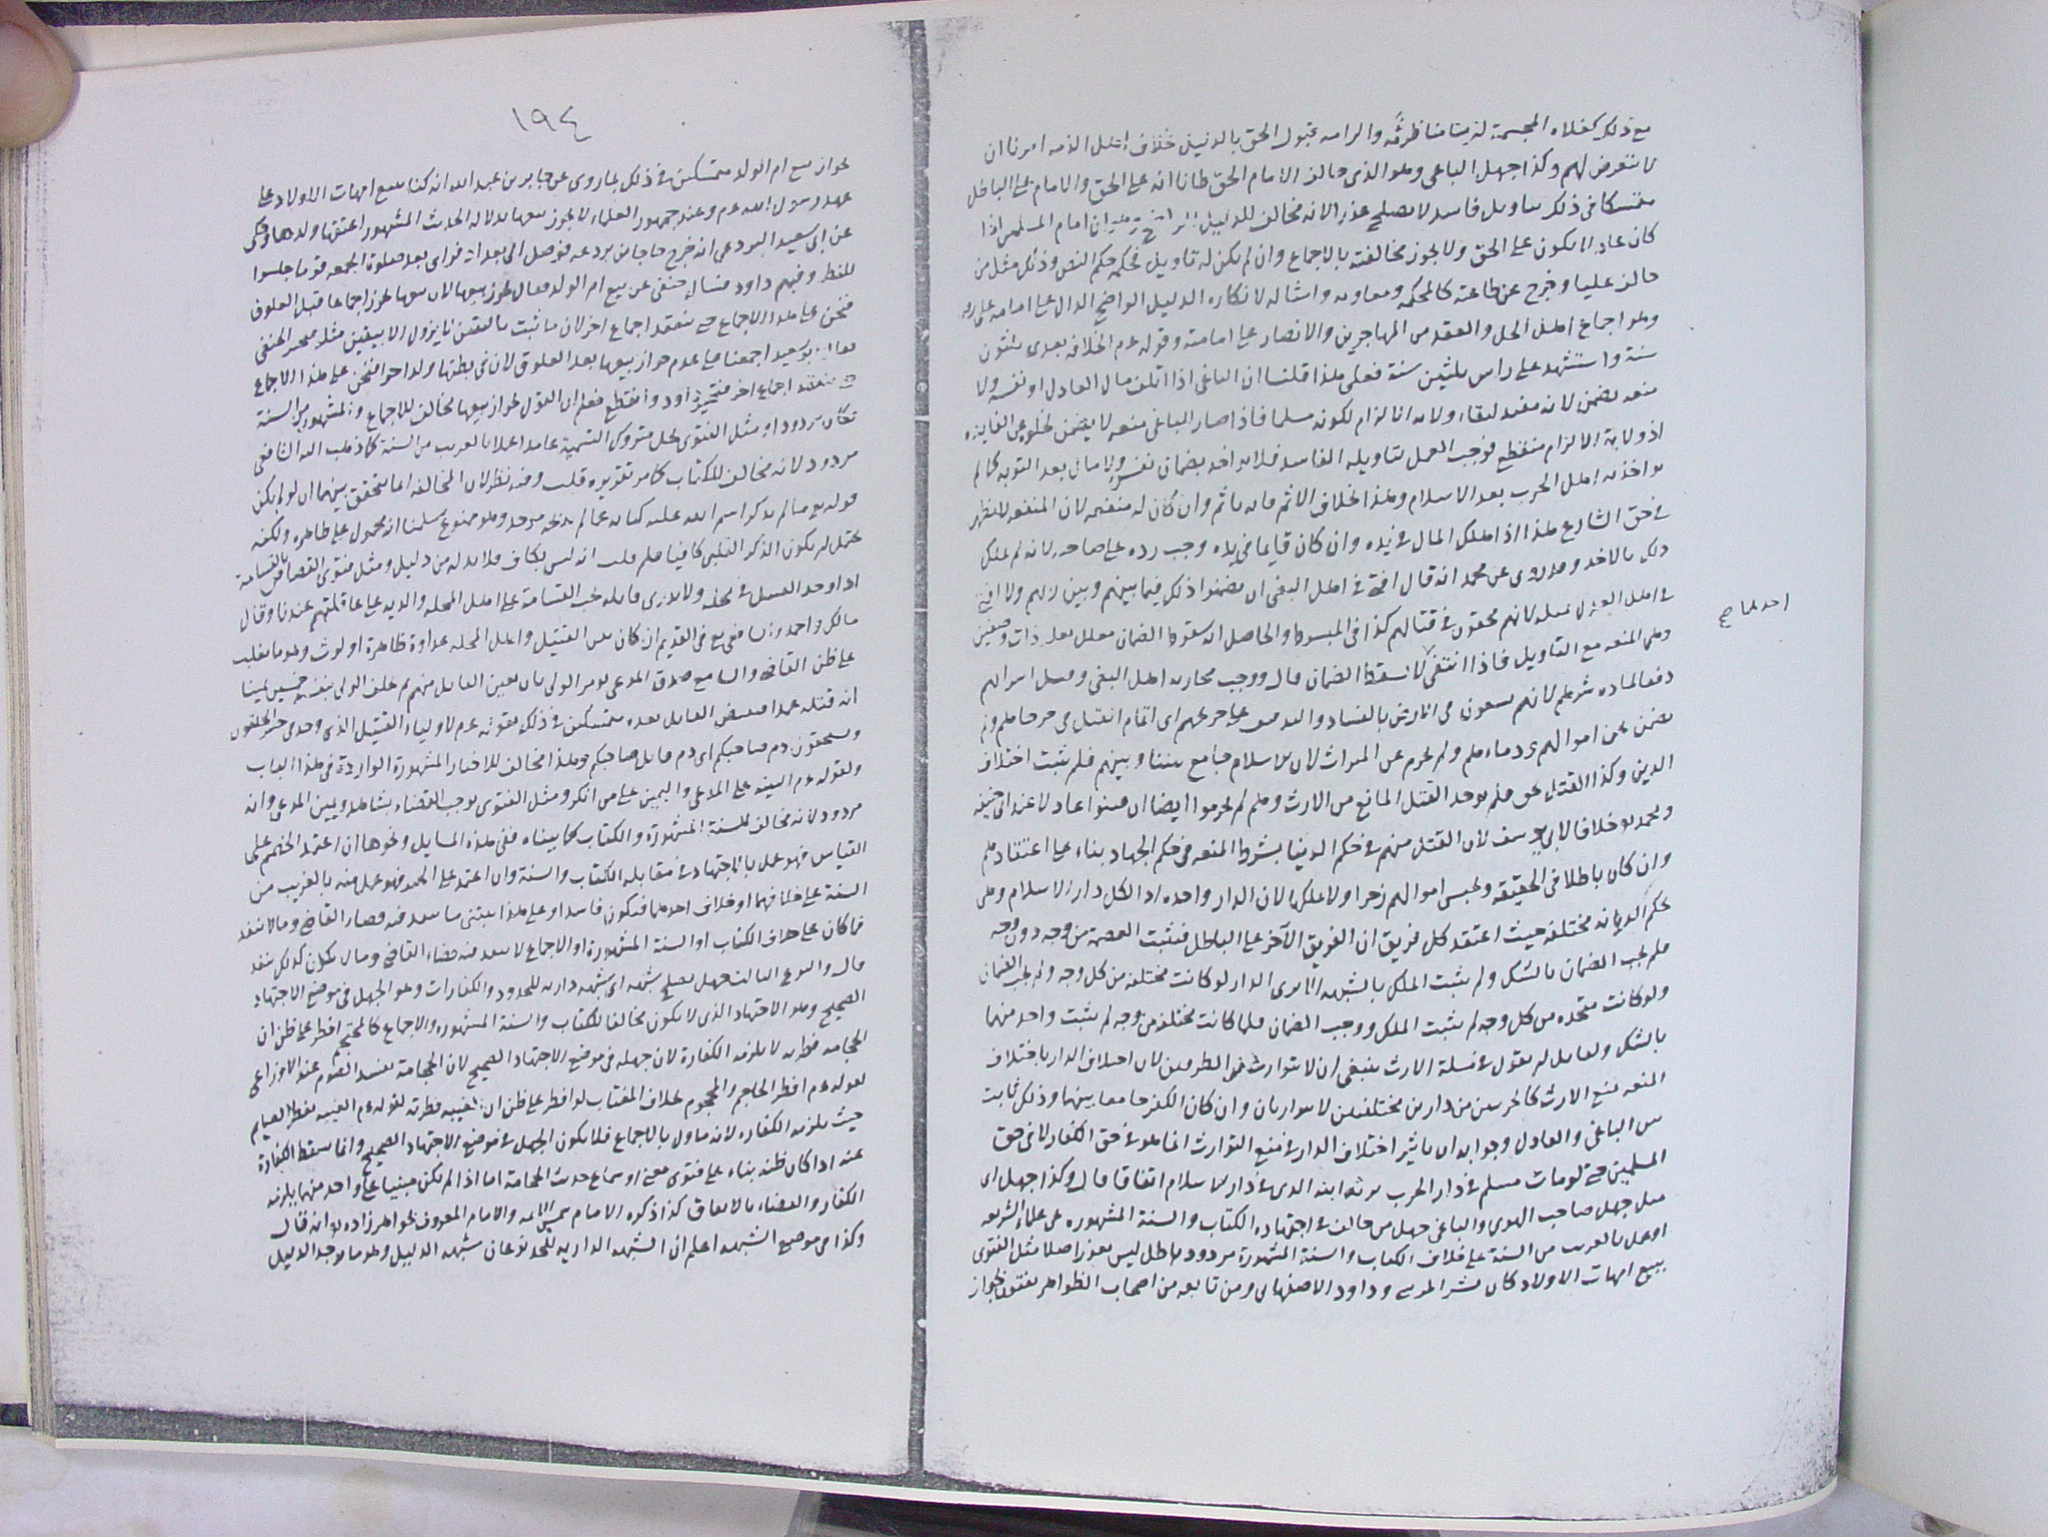 مع ذلك كغلاة المجسمة لزمنا مناظرته والزامه بقبول الحق بالدليل خلاف اهل الذمة امرنا ان
لا نتعرض لهم وكذا جهل الباغي وهو الذي خالف الامام الحق ظانا انه على الحق والامام على الباطل
متمسكا في ذلك بتاويل فاسد لا يصلح عذرا لانه مخالف للدليل الواضح امام المسلمين اذا
كان عادلا يكون على الحق ولا يجوز مخالفته بالاجماع وان لم يكن له تاويل فحكمه حكم اللص وذلك مثل من
خالف عليا وخرج عن طاعته كالمحكمه ومعاويه وامثاله لانكاره الدليل الواضح الدال على امامه علي
وهو اجماع اهل الحل والعقد من المهاجرين والانصار على امامته وقوله عم الخلافه بعدي ثلثون
سنة واستشهد على راس ثلثين سنة فعلى هذا قلنا ان الباغي اذا اتلف مال العادل او نفسه ولا
منعه يضمن لانه مفيد لبقاء ولايه الالزام لكونه مسلما فاذا صار للباغي منعه لا يضمن لخلوه عن الفايده
اذ ولاية الالزام منقطع فوجب العمل بتاويله الفاسد فلا يواخذ بضمان نفس ولا مال بعد التوبه كما لم
يواخذ به اهل الحرب بعد الاسلام وهذا بخلاف الاثم فانه ياثم وان كان له منعه لان المنعه لا تظهر
في حق الشارع هذا اذا هلك المال في يده وان كان قايما في يده وجب رده على صاحبه لانه لم يملك
ذلك بالاخذ وقد روي عن محمد انه قال افتي في اهل البغي ان يضمنوا ذلك فيما بينهم وبين ربهم ولا افتي
في اهل العدل بمثله لانهم محقون في قتالهم كذا في المبسوط والحاصل ان سقوط الضمان معلل بعلة ذات وصفين
احدهما
وهي المنعه مع التاويل فاذا انتفى لا يسقط الضمان قال ووجب محاربه اهل البغي وقتل اسرائهم
دفعا لماده شرهم لانهم يسعون في الارض بالفساد والتدفيف على جريحهم اي اتمام القتل في جرحاهم ولم
نضمن نحن اموالهم ودماءهم ولم نحرم عن الميراث لان الاسلام جامع بيننا وبينهم فلم يثبت اختلاف
الدين وكذا القتل بحق فلم يوجد القتل المانع من الارث وهم لم يحرموا ايضا ان قتلوا عادلا عند ابي حنيفه
ومحمد خلافا لابي يوسف لان القتل منهم في حكم الدنيا بشرط المنعه في حكم الجهاد بناء على اعتقادهم
وان كان باطلا في الحقيقه ونحبس اموالهم زجرا ولا نملكها لان الدار واحده اذ الكل دار الاسلام وهي
بحكم الديانه مختلفه حيث اعتقد كل فريق ان الفريق الآخر على الباطل فتثبت العصمة من وجه دون وجه
فلم يجب الضمان بالشك ولم يثبت الملك بالشبهه الا ترى الدار لو كانت مختلفه من كل وجه ولم يجب الضمان
ولو كانت متحده من كل وجه لم يثبت الملك ووجب الضمان فلما كانت مختلفه من وجه لم يثبت واحد منهما
بالشك ولقايل ان يقول في مسلة الارث ينبغي ان لا توارث من الطرفين لان اختلاف الدار باختلاف
المنعه يمنع الارث كالحربيين من دارين مختلفتين لا يتوارثان وان كان الكفر جامعا بينهما وذلك ثابت
بين الباغي والعادل وجوابه ان تاثير اختلاف الدار في منع التوارث انما هو في حق الكفار لا في حق
المسلمين حتى لو مات مسلم في دار الحرب يرثه ابنه الذي في دار الاسلام اتفاقا قال وكذا جهل اي
مثل جهل صاحب الهوى والباغي جهل من خالف في اجتهاده الكتاب والسنة المشهوره من علماء الشريعه
او عمل بالغريب من السنة على خلاف الكتاب والسنة المشهورة مردود باطل ليس بعذر اصلا مثل الفتوى
ببيع امهات الاولاد كان بشر المريسي وداود الاصفهاني ومن تابعه من اصحاب الظواهر يفتون بجواز
١٩٤
بجواز بيع ام الولد متمسكين في ذلك بما روي عن جابر بن عبد الله انه كنا نبيع امهات الاولاد على
عهد رسول الله عم وعند جمهور العلماء لا يجوز بيعها لدلالة الحديث المشهور اعتقها ولدها وحكي
عن ابي سعيد البردعي انه خرج حاجا من بردعه فوصل الى بغداد فراى بعد صلوة الجمعه قوما جلسوا
للنظر وفيهم داود فساله حنفي عن بيع ام الولد فقال يجوز بيعها لان بيعها يجوز اجماعا قبل العلوق
فنحن على هذا الاجماع حتى ينعقد اجماع اخر لان ما ثبت باليقين لا يزول الا بيقين مثله فتحير الحنفي
فقال ابو سعيد اجمعنا على عدم جواز بيعها بعد العلوق لان في بطنها ولدا حرا فنحن على هذا الاجماع
حتى ينعقد اجماع اخر فتحير داود وانقطع فعلم ان القول بجواز بيعها مخالف للاجماع والمشهور من السنة
فكان مردودا ومثل الفتوى بحل متروك التسمية عامدا عملا بالغريب من السنة كما ذهب اليه الشافعي
مردود لانه مخالف للكتاب كما مر تقديره قلت وفيه نظر لان المخالفه انما تتحقق بينهما ان لو لم يكن
قوله مما لم يذكر اسم الله عليه كنايه عما لم يذبحه موحد وهو ممنوع سلمنا انه محمول على ظاهره ولكنه
يحتمل ان يكون الذكر القلبي كافيا فلم قلت انه ليس بكاف فلا بد له من دليل ومثل فتوى القصاص بالقسامة
اذا وجد القتيل في محله ولا يدرى قاتله يجب القسامة على اهل المحله والديه على عاقلتهم عندنا وقال
مالك واحمد والشافعي في القديم ان كان بين القتيل واهل المحله عداوة ظاهرة او لوث وهو ما يغلب
على ظن القاضي والسامع صدق المدعي يومر الولي بان يعين القاتل منهم ثم يحلف الولي بنفسه خمسين يمينا
انه قتله عمدا فيقتص القاتل بعده متمسكين في ذلك بقوله عم لاولياء القتيل الذي وجد في خيبر اتحلفون
وتستحقون دم صاحبكم اي دم قاتل صاحبكم وهذا مخالف للاخبار المشهورة الواردة في هذا الباب
ولقوله عم البينه على المدعي واليمين على من انكر ومثل الفتوى بوجوب القضاء بشاهد ويمين المدعي وانه
مردود لانه مخالف للسنة المشهورة والكتاب كما بيناه ففي هذه المسايل ونحوها ان اعتمد الخصم على
القياس فهو عمل بالاجتهاد في مقابله الكتاب والسنة وان اعتمد على الحديث فهو عمل منه بالغريب من
السنة على خلافهما او خلاف احدهما فيكون فاسدا وعلى هذا يبتنى ما ينفذ فيه قضاء القاضي وما لا ينفذ
فما كان على خلاف الكتاب او السنة المشهورة او الاجماع لا ينفذ فيه قضاء القاضي وما لا يكون كذلك ينفذ
قال والنوع الثالث جهل يصلح شبهه اي شبهه دارئه للحدود والكفارات وهو الجهل في موضع الاجتهاد
الصحيح وهو الاجتهاد الذي لا يكون مخالفا للكتاب والسنة المشهوره والاجماع كالمحتجم افطر على ظن ان
الحجامه فطرته لا يلزمه الكفارة لان جهله في موضع الاجتهاد الصحيح لان الحجامة تفسد الصوم عند الاوزاعي
لقوله عم افطر الحاجم والمحجوم بخلاف المغتاب لو افطر على ظن ان الغيبه فطرته لقوله عم الغيبه تفطر الصيام
حيث يلزمه الكفاره لانه ماول بالاجماع فلا يكون الجهل في موضع الاجتهاد الصحيح وانما سقط الكفارة
عنه اذا كان ظنه بناء على فتوى مفتي او سماع حديث الحجامة اما اذا لم يكن مبنيا على واحد منهما يلزمه
الكفار والقضاء بالاتفاق كذا ذكره الامام شمس الائمه والامام المعروف بخواهر زاده وانه قال
وكذا في موضع الشبهه اعلم ان الشبهه الداريه للحد نوعان شبهه الدليل وهو ما يوجد الدليل